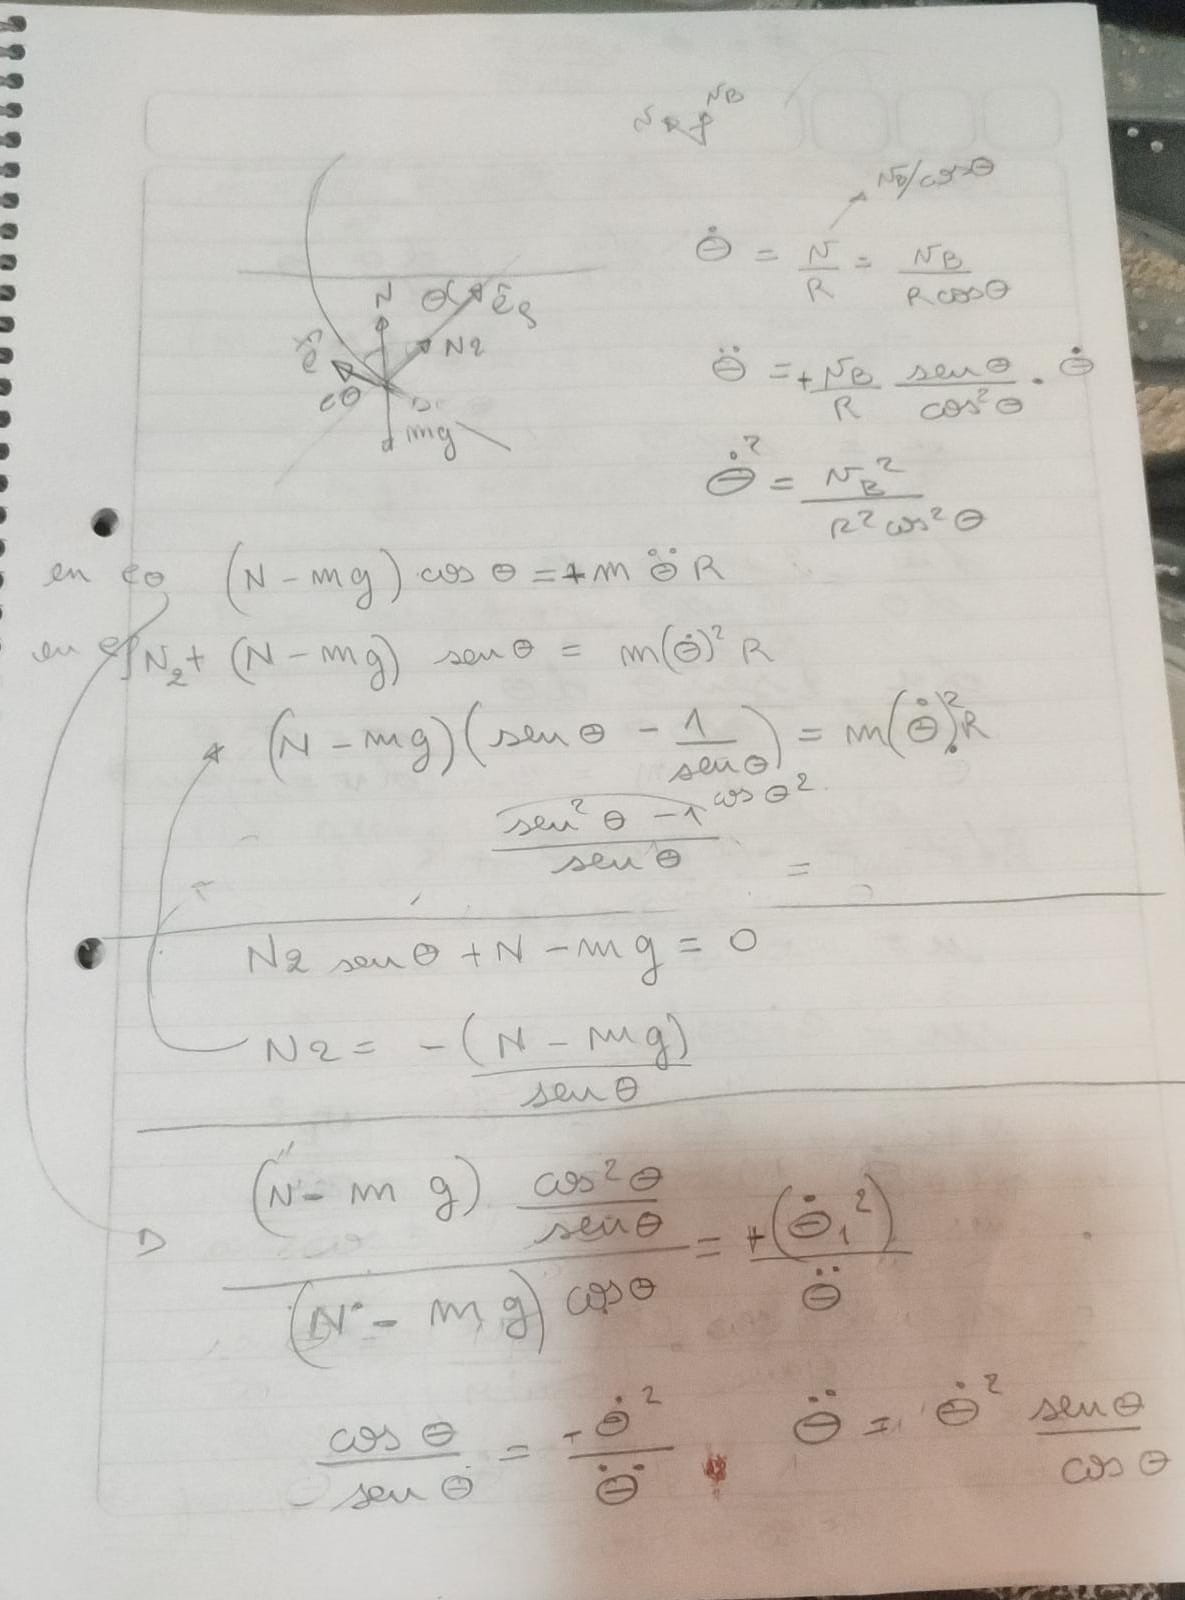 N_B
N_B/cosθ
θ̇ = N/R = N_B/(R cosθ)
N θ ê_ρ
N2
eθ
mg
θ̈ = + N_B/R senθ/cos²θ . θ̇
θ̇² = N_B²/(R² cos²θ)
en eθ (N - mg) cos θ = + m θ̈ R
en eρ N₂ + (N - mg) sen θ = m(θ̇)² R
(N - mg)(sen θ - 1/sen θ) = m(θ̇)² R
cos θ²
(sen² θ - 1)/sen θ =
N2 sen θ + N - mg = 0
N2 = -(N - mg)/sen θ
(N - mg) cos²θ/senθ / (N - mg) cosθ = +(θ̇₁²)/θ̈
cos θ/sen θ = -θ̇²/θ̈ θ̈ = θ̇² senθ/cosθ